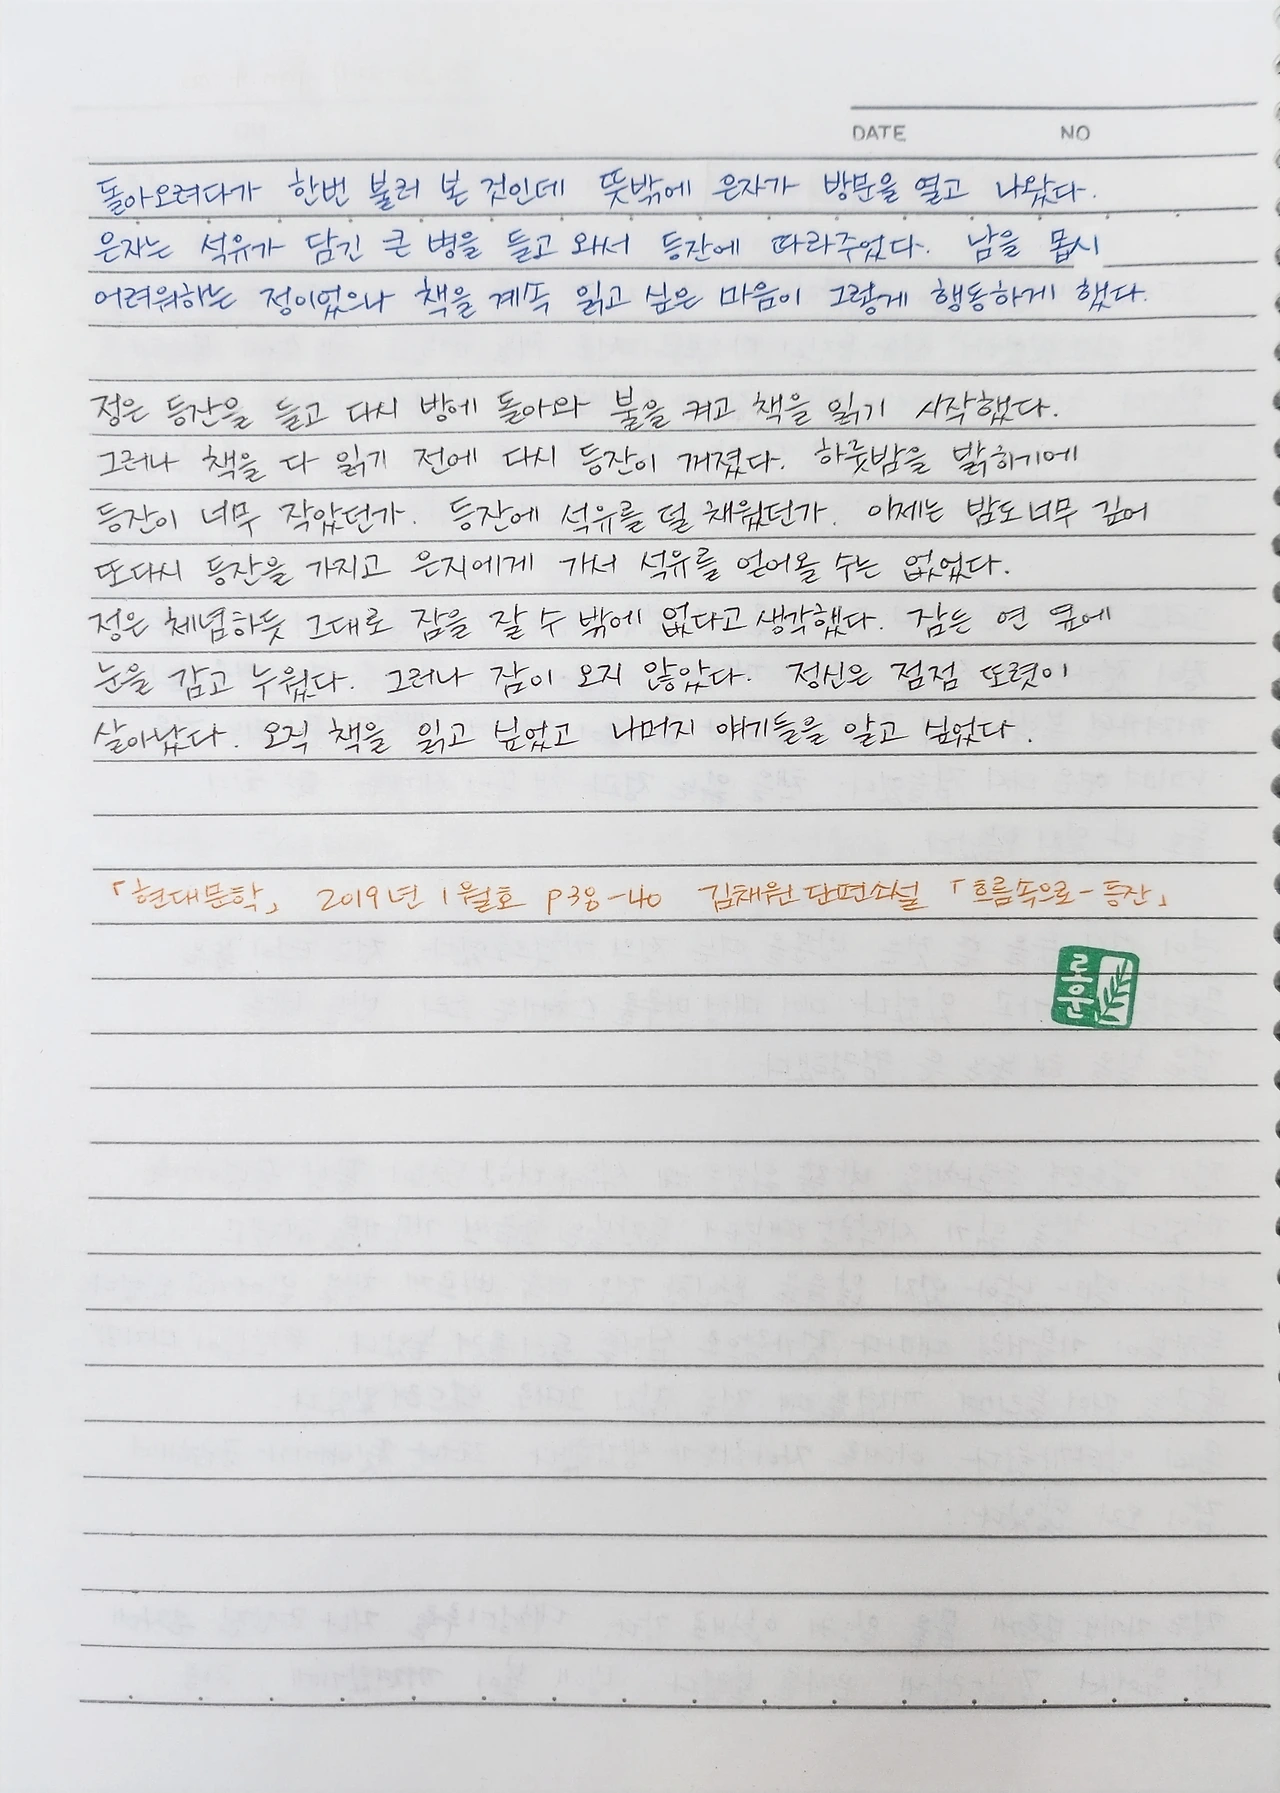 DATE NO
돌아오려다가 한번 불러 본 것인데 뜻밖에 은자가 방문을 열고 나왔다.
은자는 석유가 담긴 큰 병을 들고 와서 등잔에 따라주었다. 남을 몹시
어려워하는 정이었으나 책을 계속 읽고 싶은 마음이 그렇게 행동하게 했다.
정은 등잔을 들고 다시 방에 돌아와 불을 켜고 책을 읽기 시작했다.
그러나 책을 다 읽기 전에 다시 등잔이 꺼졌다. 하룻밤을 밝히기에
등잔이 너무 작았던가. 등잔에 석유를 덜 채웠던가. 이제는 밤도 너무 깊어
또다시 등잔을 가지고 은자에게 가서 석유를 얻어올 수는 없었다.
정은 체념하듯 그대로 잠을 잘 수 밖에 없다고 생각했다. 잠든 연 옆에
눈을 감고 누웠다. 그러나 잠이 오지 않았다. 정신은 점점 또렷이
살아났다. 오직 책을 읽고 싶었고 나머지 얘기들을 알고 싶었다.
「현대문학」 2019년 1월호 p38-40 김채원 단편소설 「흐름속으로-등잔」
로운